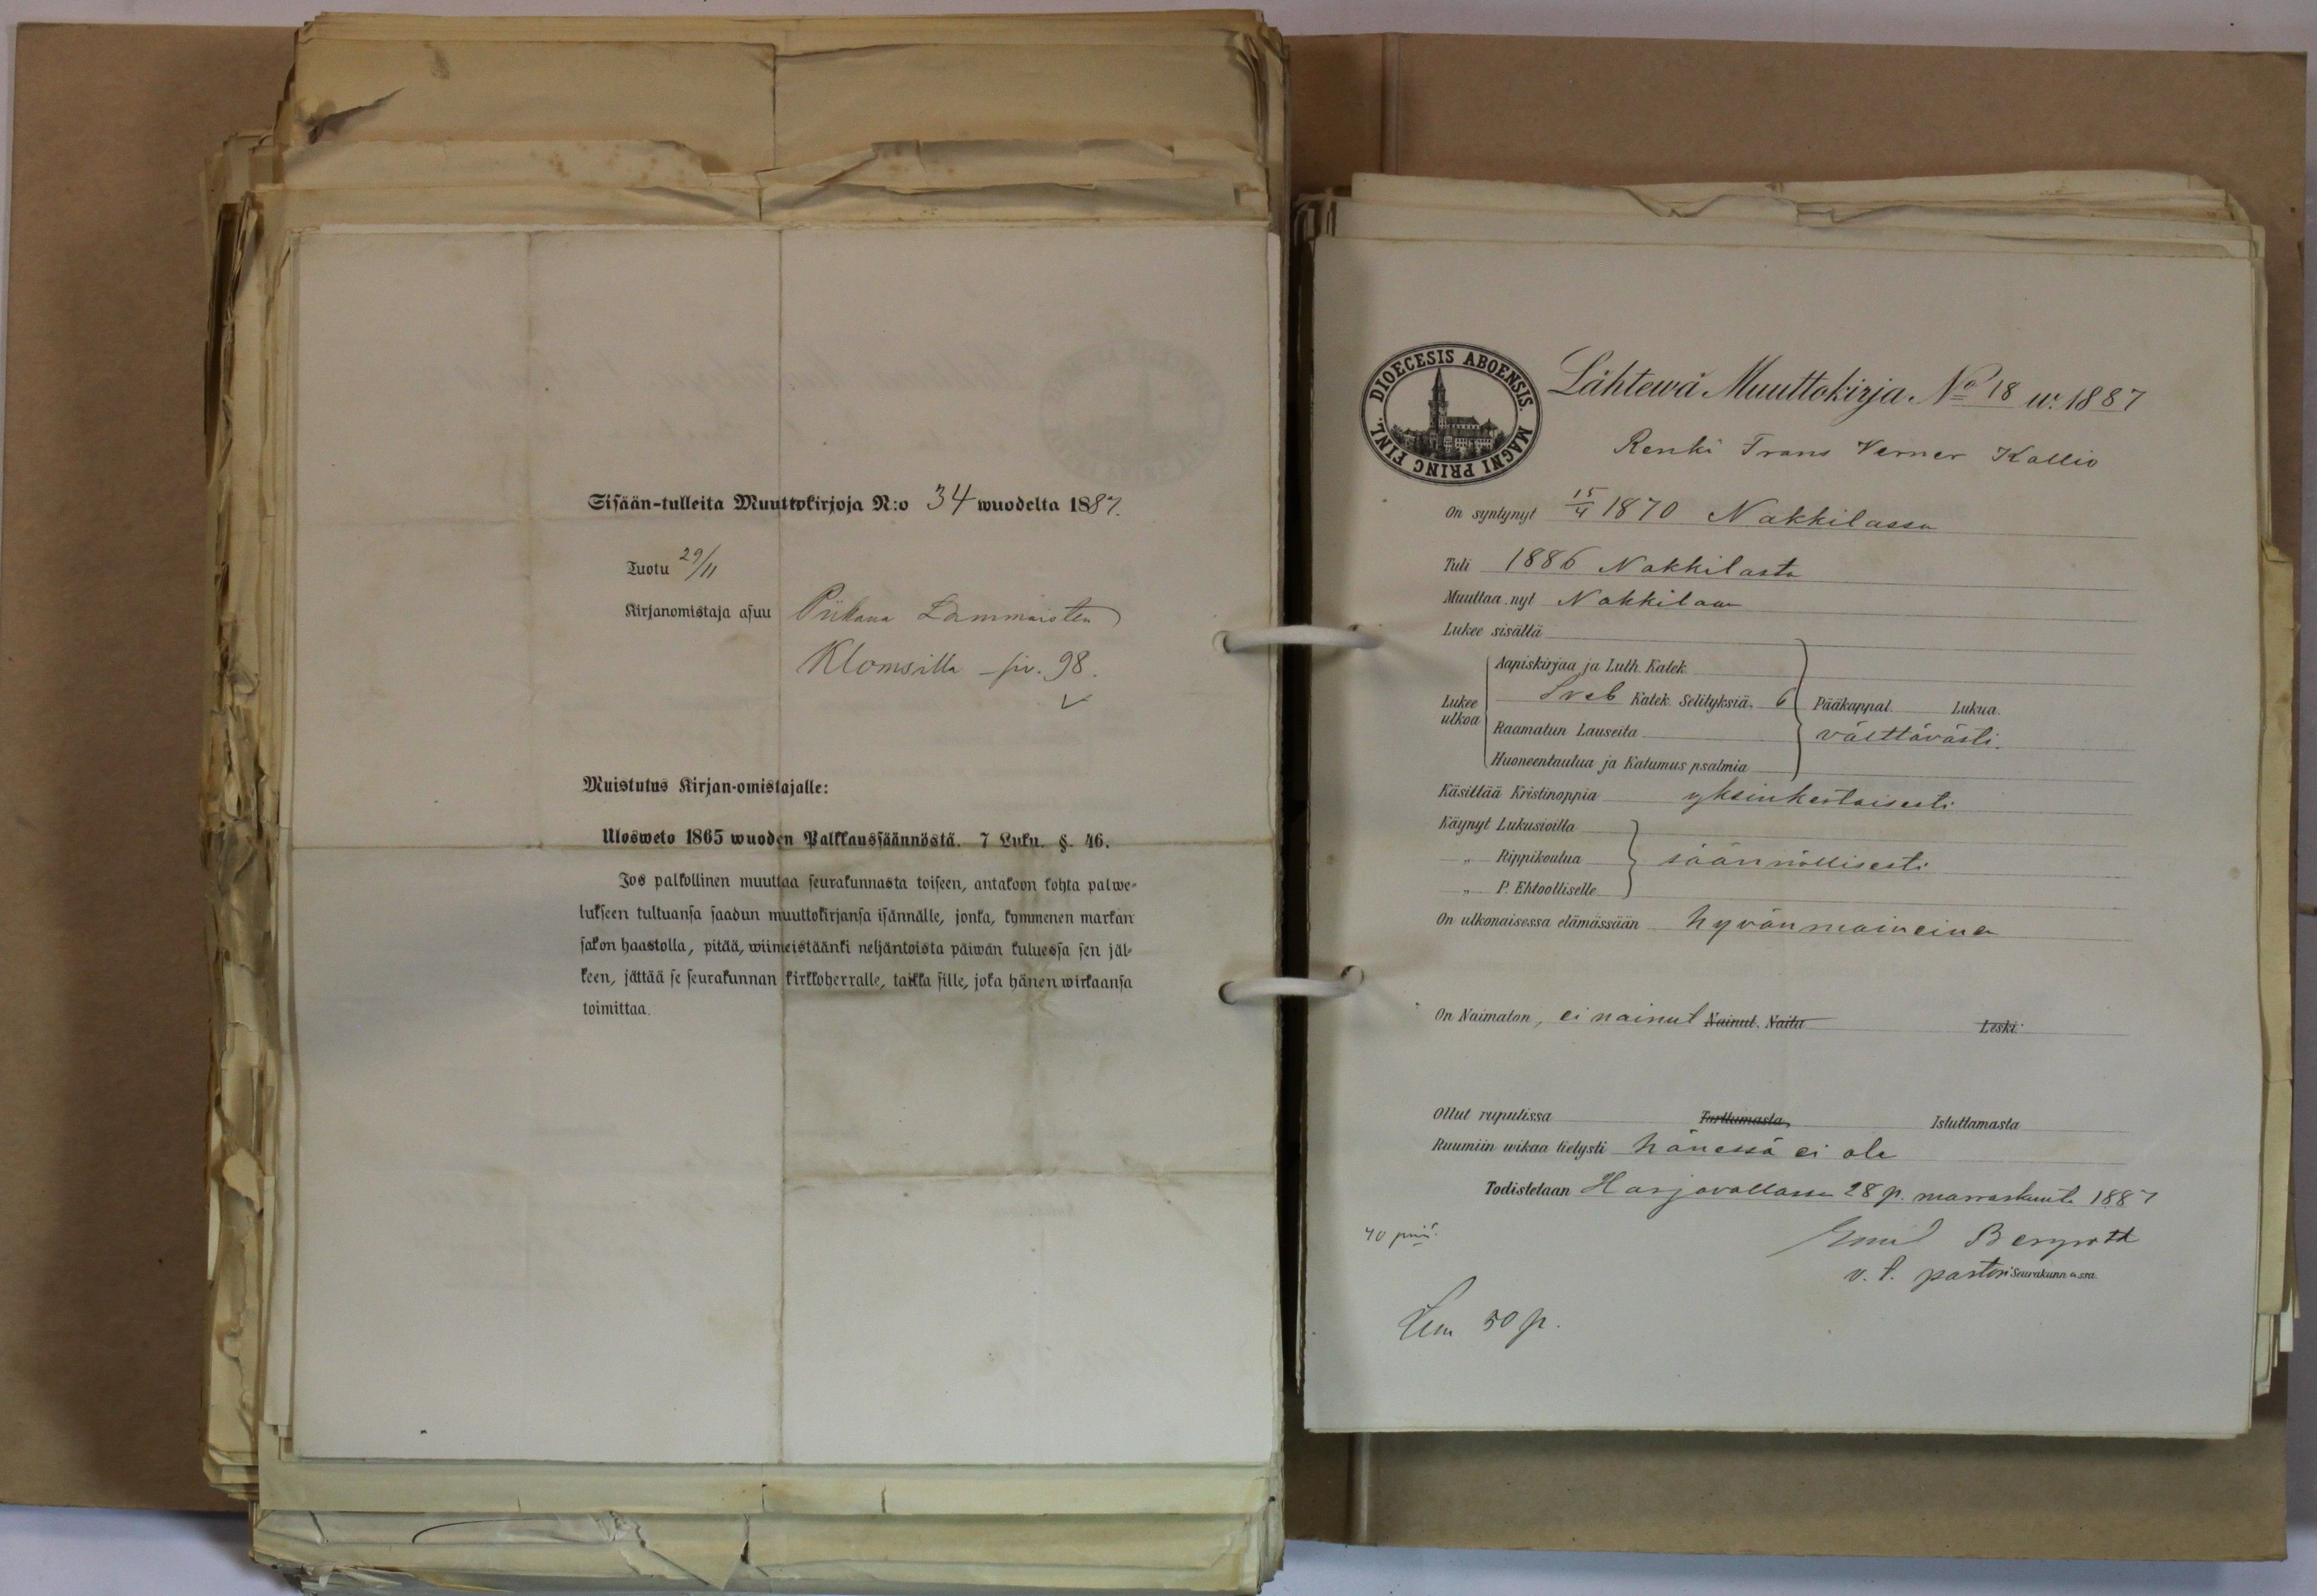 Sisään-tulleita Muuttokirjoja N:o 34 wuodelta 1887.
Tuotu 29/11
Kirjanomistaja asuu Piikana Lammaisten
Klomsilla siv. 98.
Muistutus Kirjan-omistajalle:
Ulosweto 1865 wuoden Palkkaussäännöstä. 7 Luku. §. 46.
Jos palkollinen muuttaa seurakunnasta toiseen, antakoon kohta palwe-
lukseen tultuansa saadun muuttokirjansa isännälle, jonka, kymmenen markan
sakon haastolla, pitää, wiimeistäänki neljäntoista päiwän kuluessa sen jäl-
keen, jättää se seurakunnan kirkkoherralle, taikka sille, joka hänen wirkaansa
toimittaa.
DIOECESIS ABOENSIS. MAGNI PRINC FINL.
Lähtewä Muuttokirja No 18 w. 1887
Renki Frans Verner Kallio
On syntynyt 15/4 1870 Nakkilassa
Tuli 1886 Nakkilasta
Muuttaa nyt Nakkilaan
Lukee sisältä
Lukee ulkoa
Aapiskirjaa ja Luth. Katek.
Sveb Katek. Selityksiä. 6 Pääkappal. Lukua.
Raamatun Lauseita välttävästi.
Huoneentaulua ja Katumus psalmia
Käsittää Kristinoppia yksinkertaisesti
Käynyt Lukusioilla
„ Rippikoulua säännöllisesti
„ P. Ehtoolliselle
On ulkonaisessa elämässään hyvänmaineinen
On Naimaton, ei nainut Nainut. Naitu Leski.
Ollut rupulissa Tarttumasta, Istuttamasta
Ruumiin wikaa tietysti hänessä ei ole
Todistetaan Harjavallassa 28 p. marraskuuta 1887
40 pniä.
Emil Bergroth
v. t. pastori Seurakunnassa.
50 p.